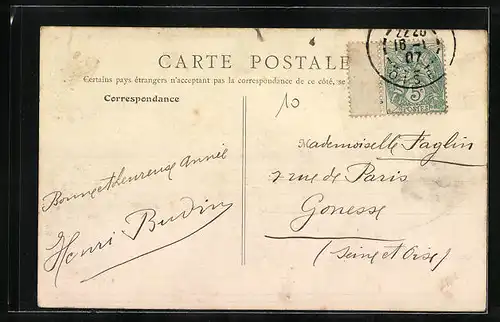 CARTE POSTALE
Certains pays étrangers n'acceptant pas la correspondance de ce côté, se
Correspondance
10
22 20
16 - 1
07
OISE
5
POSTES
Mademoiselle Faglin
2 rue de Paris
Gonesse
(Seine et Oise)
Bonne et heureuse année
Henri Budin